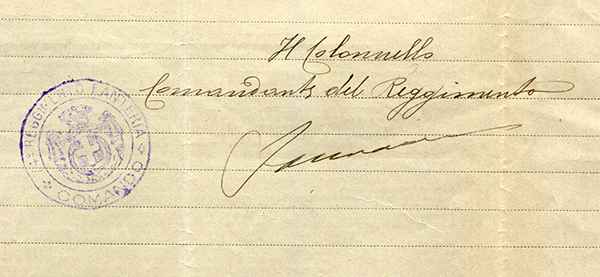 Il Colonnello
Comandante del Reggimento
FANTERIA
COMANDO